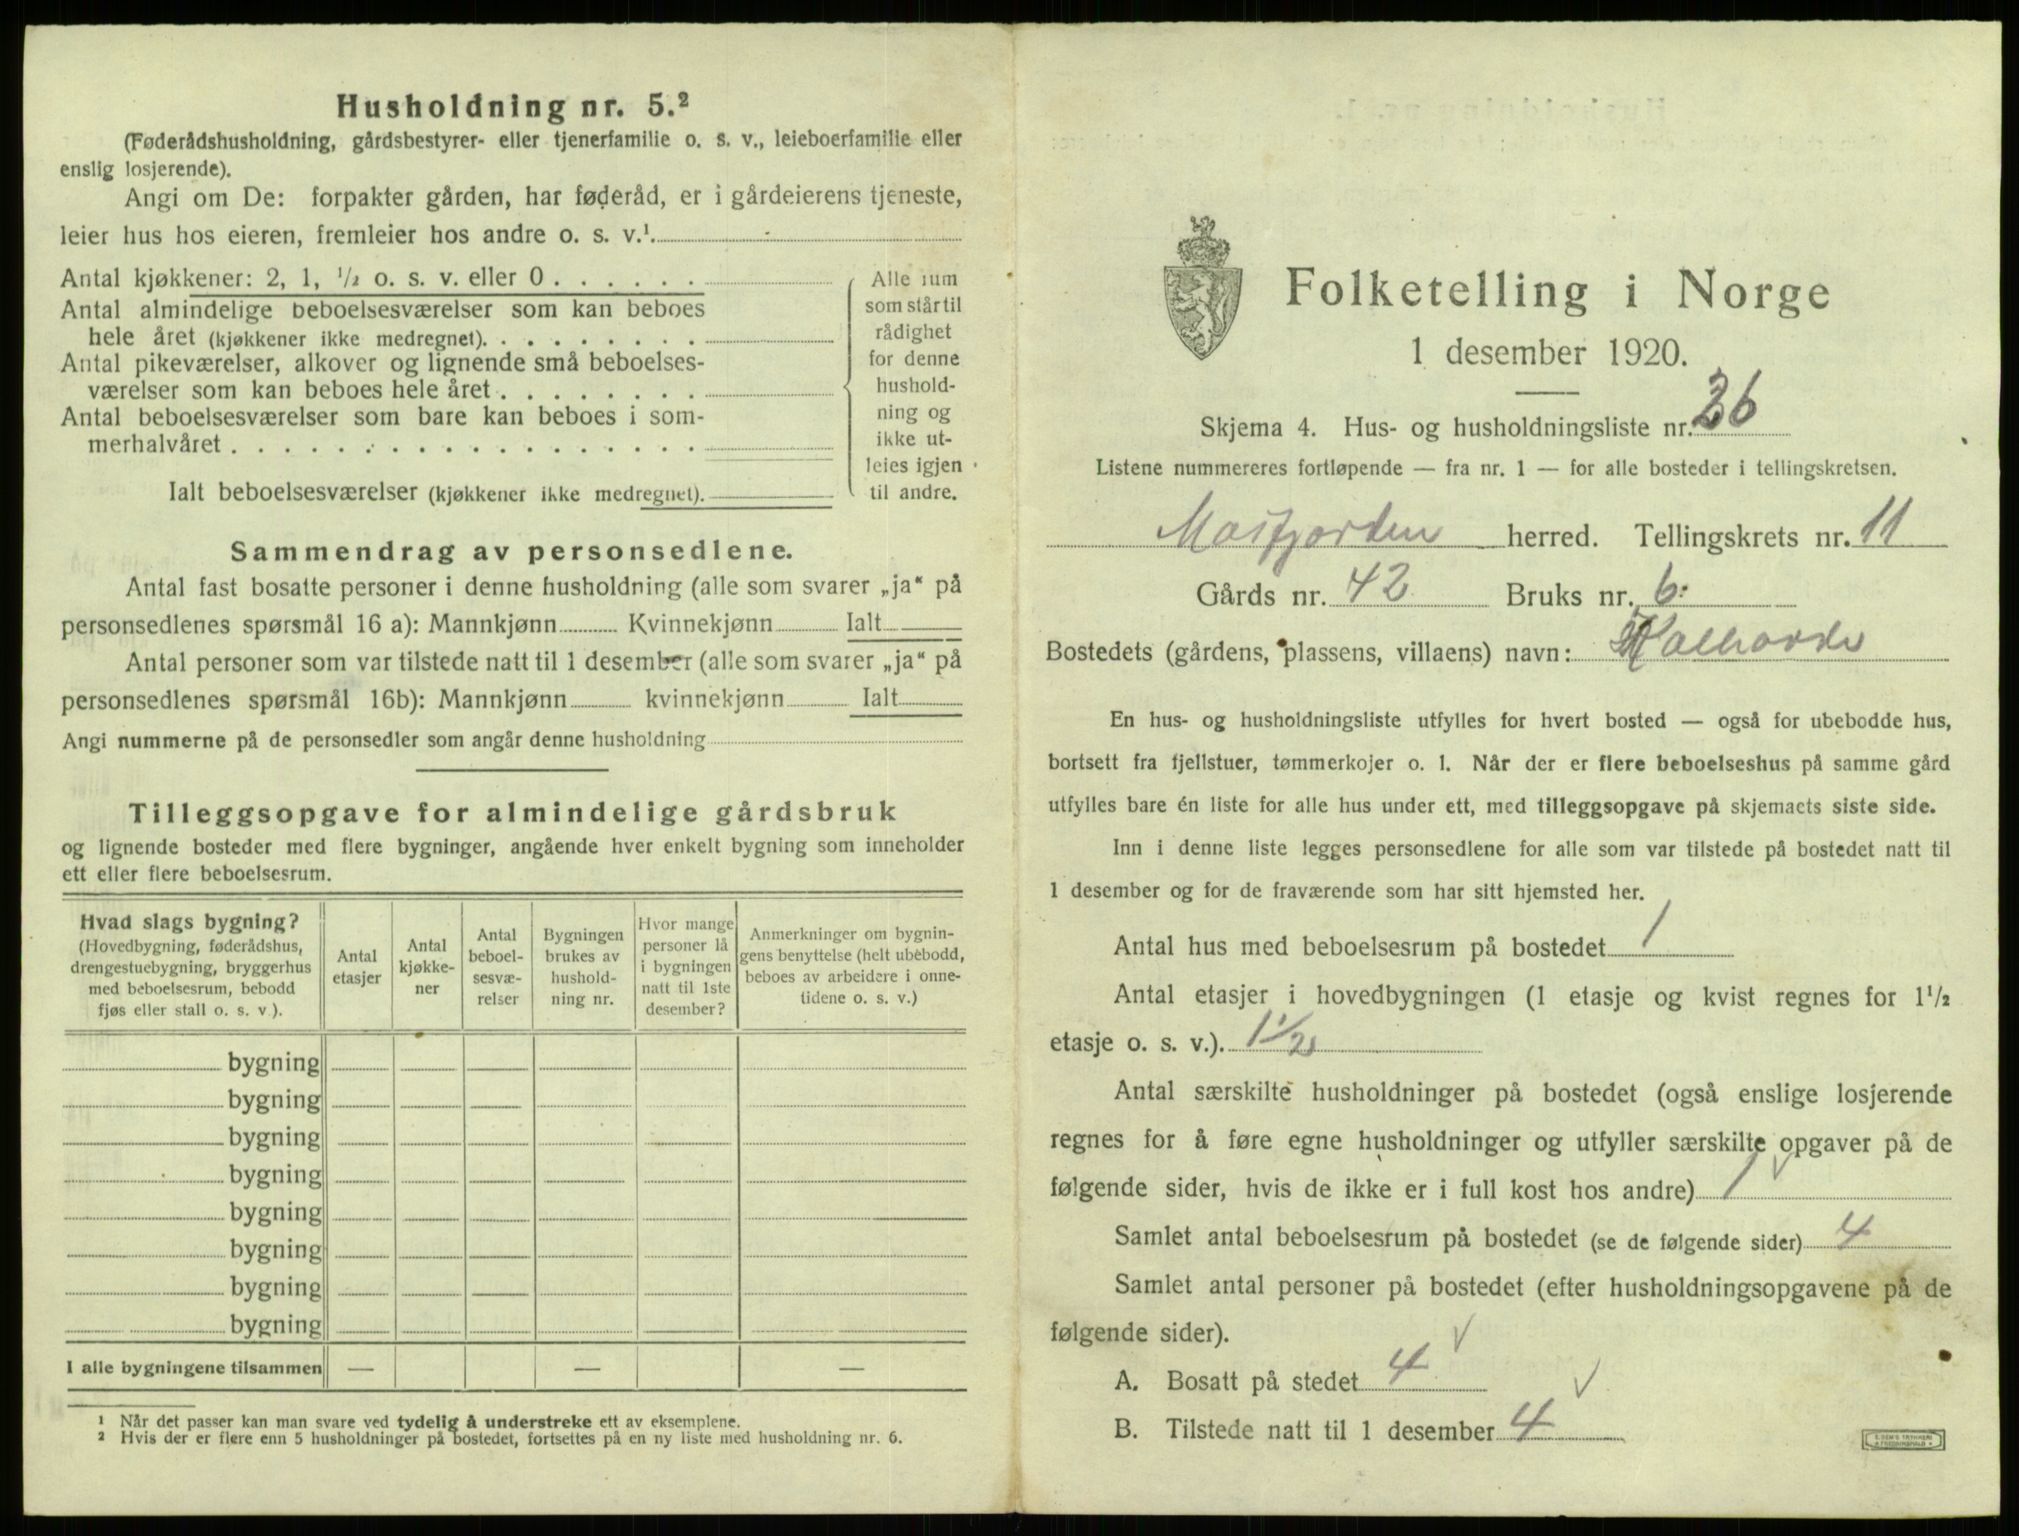 Husholdning nr. 5.²
(Føderådshusholdning, gårdsbestyrer- eller tjenerfamilie o. s. v., leieboerfamilie eller
enslig losjerende).
Angi om De: forpakter gården, har føderåd, er i gårdeierens tjeneste,
leier hus hos eieren, fremleier hos andre o. s. v.¹.
Antal kjøkkener: 2, 1, ¹/₂ o. s. v. eller 0 . . . . . .
Antal almindelige beboelsesværelser som kan beboes
hele året (kjøkkener ikke medregnet). . . . . . . . .
Antal pikeværelser, alkover og lignende små beboelses-
værelser som kan beboes hele året . . . . . . . .
Antal beboelsesværelser som bare kan beboes i som-
merhalvåret . . . . . . . . . . . . . . . . . .
Ialt beboelsesværelser (kjøkkener ikke medregnet).
Alle rum
som står til
rådighet
for denne
hushold-
ning og
ikke ut-
leies igjen
til andre.
Sammendrag av personsedlene.
Antal fast bosatte personer i denne husholdning (alle som svarer „ja“ på
personsedlenes spørsmål 16 a): Mannkjønn Kvinnekjønn Ialt
Antal personer som var tilstede natt til 1 desember (alle som svarer „ja“ på
personsedlenes spørsmål 16b): Mannkjønn kvinnekjønn Ialt
Angi nummerne på de personsedler som angår denne husholdning
Tilleggsopgave for almindelige gårdsbruk
og lignende bosteder med flere bygninger, angående hver enkelt bygning som inneholder
ett eller flere beboelsesrum.
Hvad slags bygning?
(Hovedbygning, føderådshus,
drengestuebygning, bryggerhus
med beboelsesrum, bebodd
fjøs eller stall o. s. v.).
Antal
etasjer
Antal
kjøkke-
ner
Antal
beboel-
sesvæ-
relser
Bygningen
brukes av
hushold-
ning nr.
Hvor mange
personer lå
i bygningen
natt til 1ste
desember?
Anmerkninger om bygnin-
gens benyttelse (helt ubebodd,
beboes av arbeidere i onne-
tidene o. s. v.)
bygning
bygning
bygning
bygning
bygning
bygning
bygning
bygning
I alle bygningene tilsammen — — —
¹ Når det passer kan man svare ved tydelig å understreke ett av eksemplene.
² Hvis der er flere enn 5 husholdninger på bostedet, fortsettes på en ny liste med husholdning nr. 6.
Folketelling i Norge
1 desember 1920.
Skjema 4. Hus- og husholdningsliste nr. 26
Listene nummereres fortløpende — fra nr. 1 — for alle bosteder i tellingskretsen.
Masfjorden herred. Tellingskrets nr. 11
Gårds nr. 42 Bruks nr. 6
Bostedets (gårdens, plassens, villaens) navn:
En hus- og husholdningsliste utfylles for hvert bosted — også for ubebodde hus,
bortsett fra fjellstuer, tømmerkojer o. l. Når der er flere beboelseshus på samme gård
utfylles bare én liste for alle hus under ett, med tilleggsopgave på skjemaets siste side.
Inn i denne liste legges personsedlene for alle som var tilstede på bostedet natt til
1 desember og for de fraværende som har sitt hjemsted her.
Antal hus med beboelsesrum på bostedet 1
Antal etasjer i hovedbygningen (1 etasje og kvist regnes for 1¹/₂
etasje o. s. v.). 1½
Antal særskilte husholdninger på bostedet (også enslige losjerende
regnes for å føre egne husholdninger og utfyller særskilte opgaver på de
følgende sider, hvis de ikke er i full kost hos andre) 1 √
Samlet antal beboelsesrum på bostedet (se de følgende sider) 4
Samlet antal personer på bostedet (efter husholdningsopgavene på de
følgende sider).
A. Bosatt på stedet 4 √
B. Tilstede natt til 1 desember 4 √